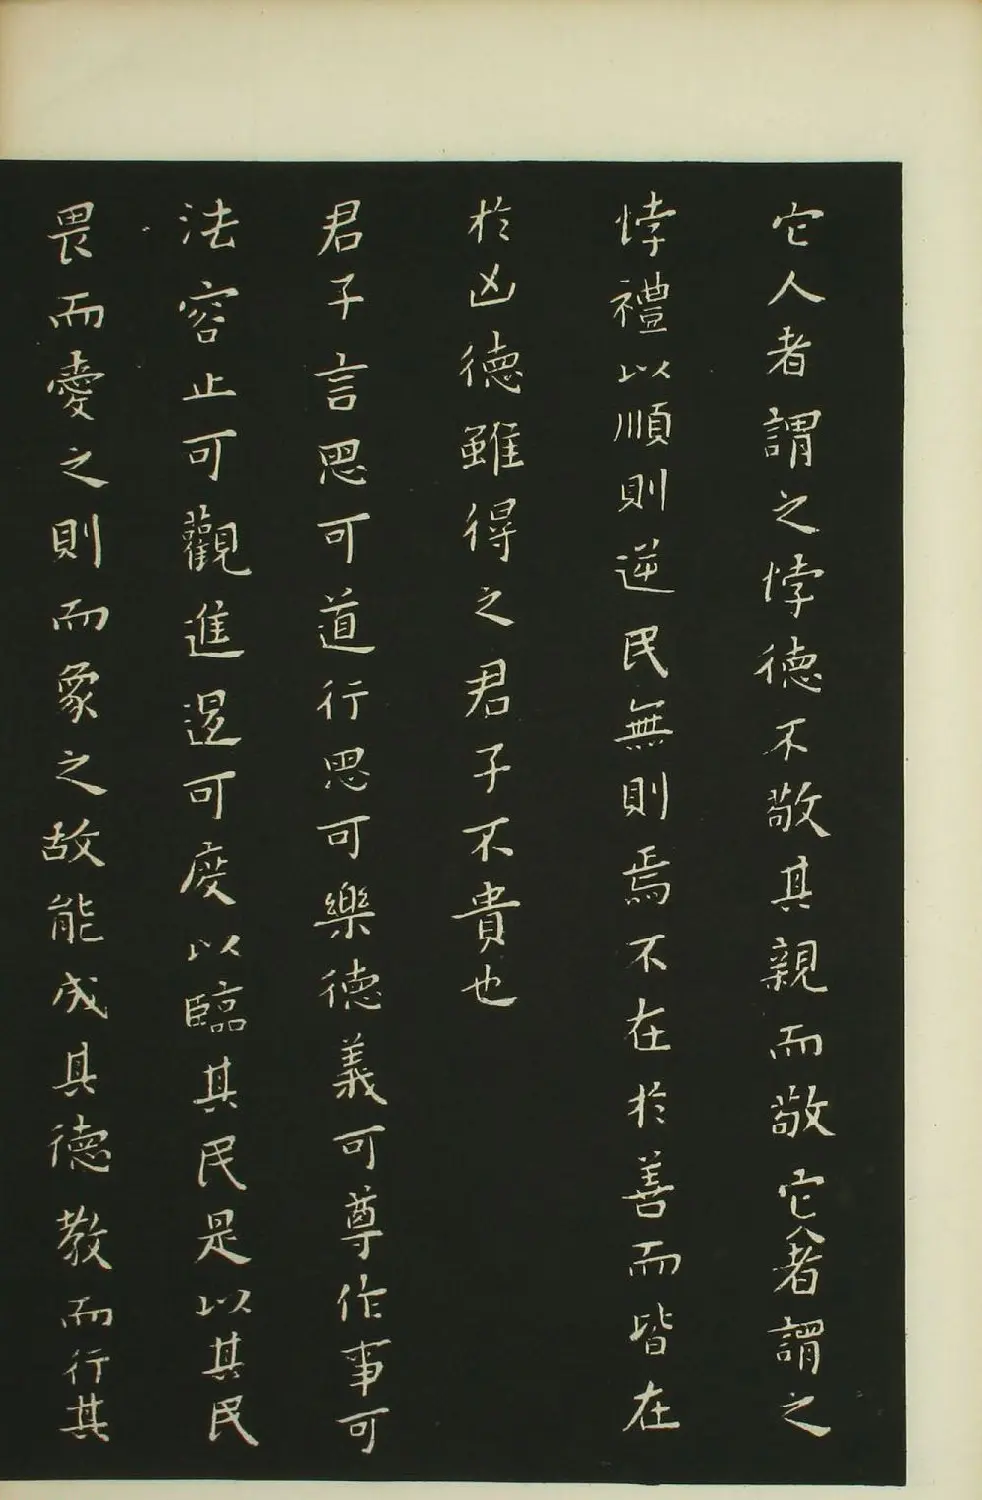 它人者謂之悖德不敬其親而敬它人者謂之
悖禮以順則逆民無則焉不在於善而皆在
於凶德雖得之君子不貴也
君子言思可道行思可樂德義可尊作事可
法容止可觀進退可度以臨其民是以其民
畏而愛之則而象之故能成其德教而行其